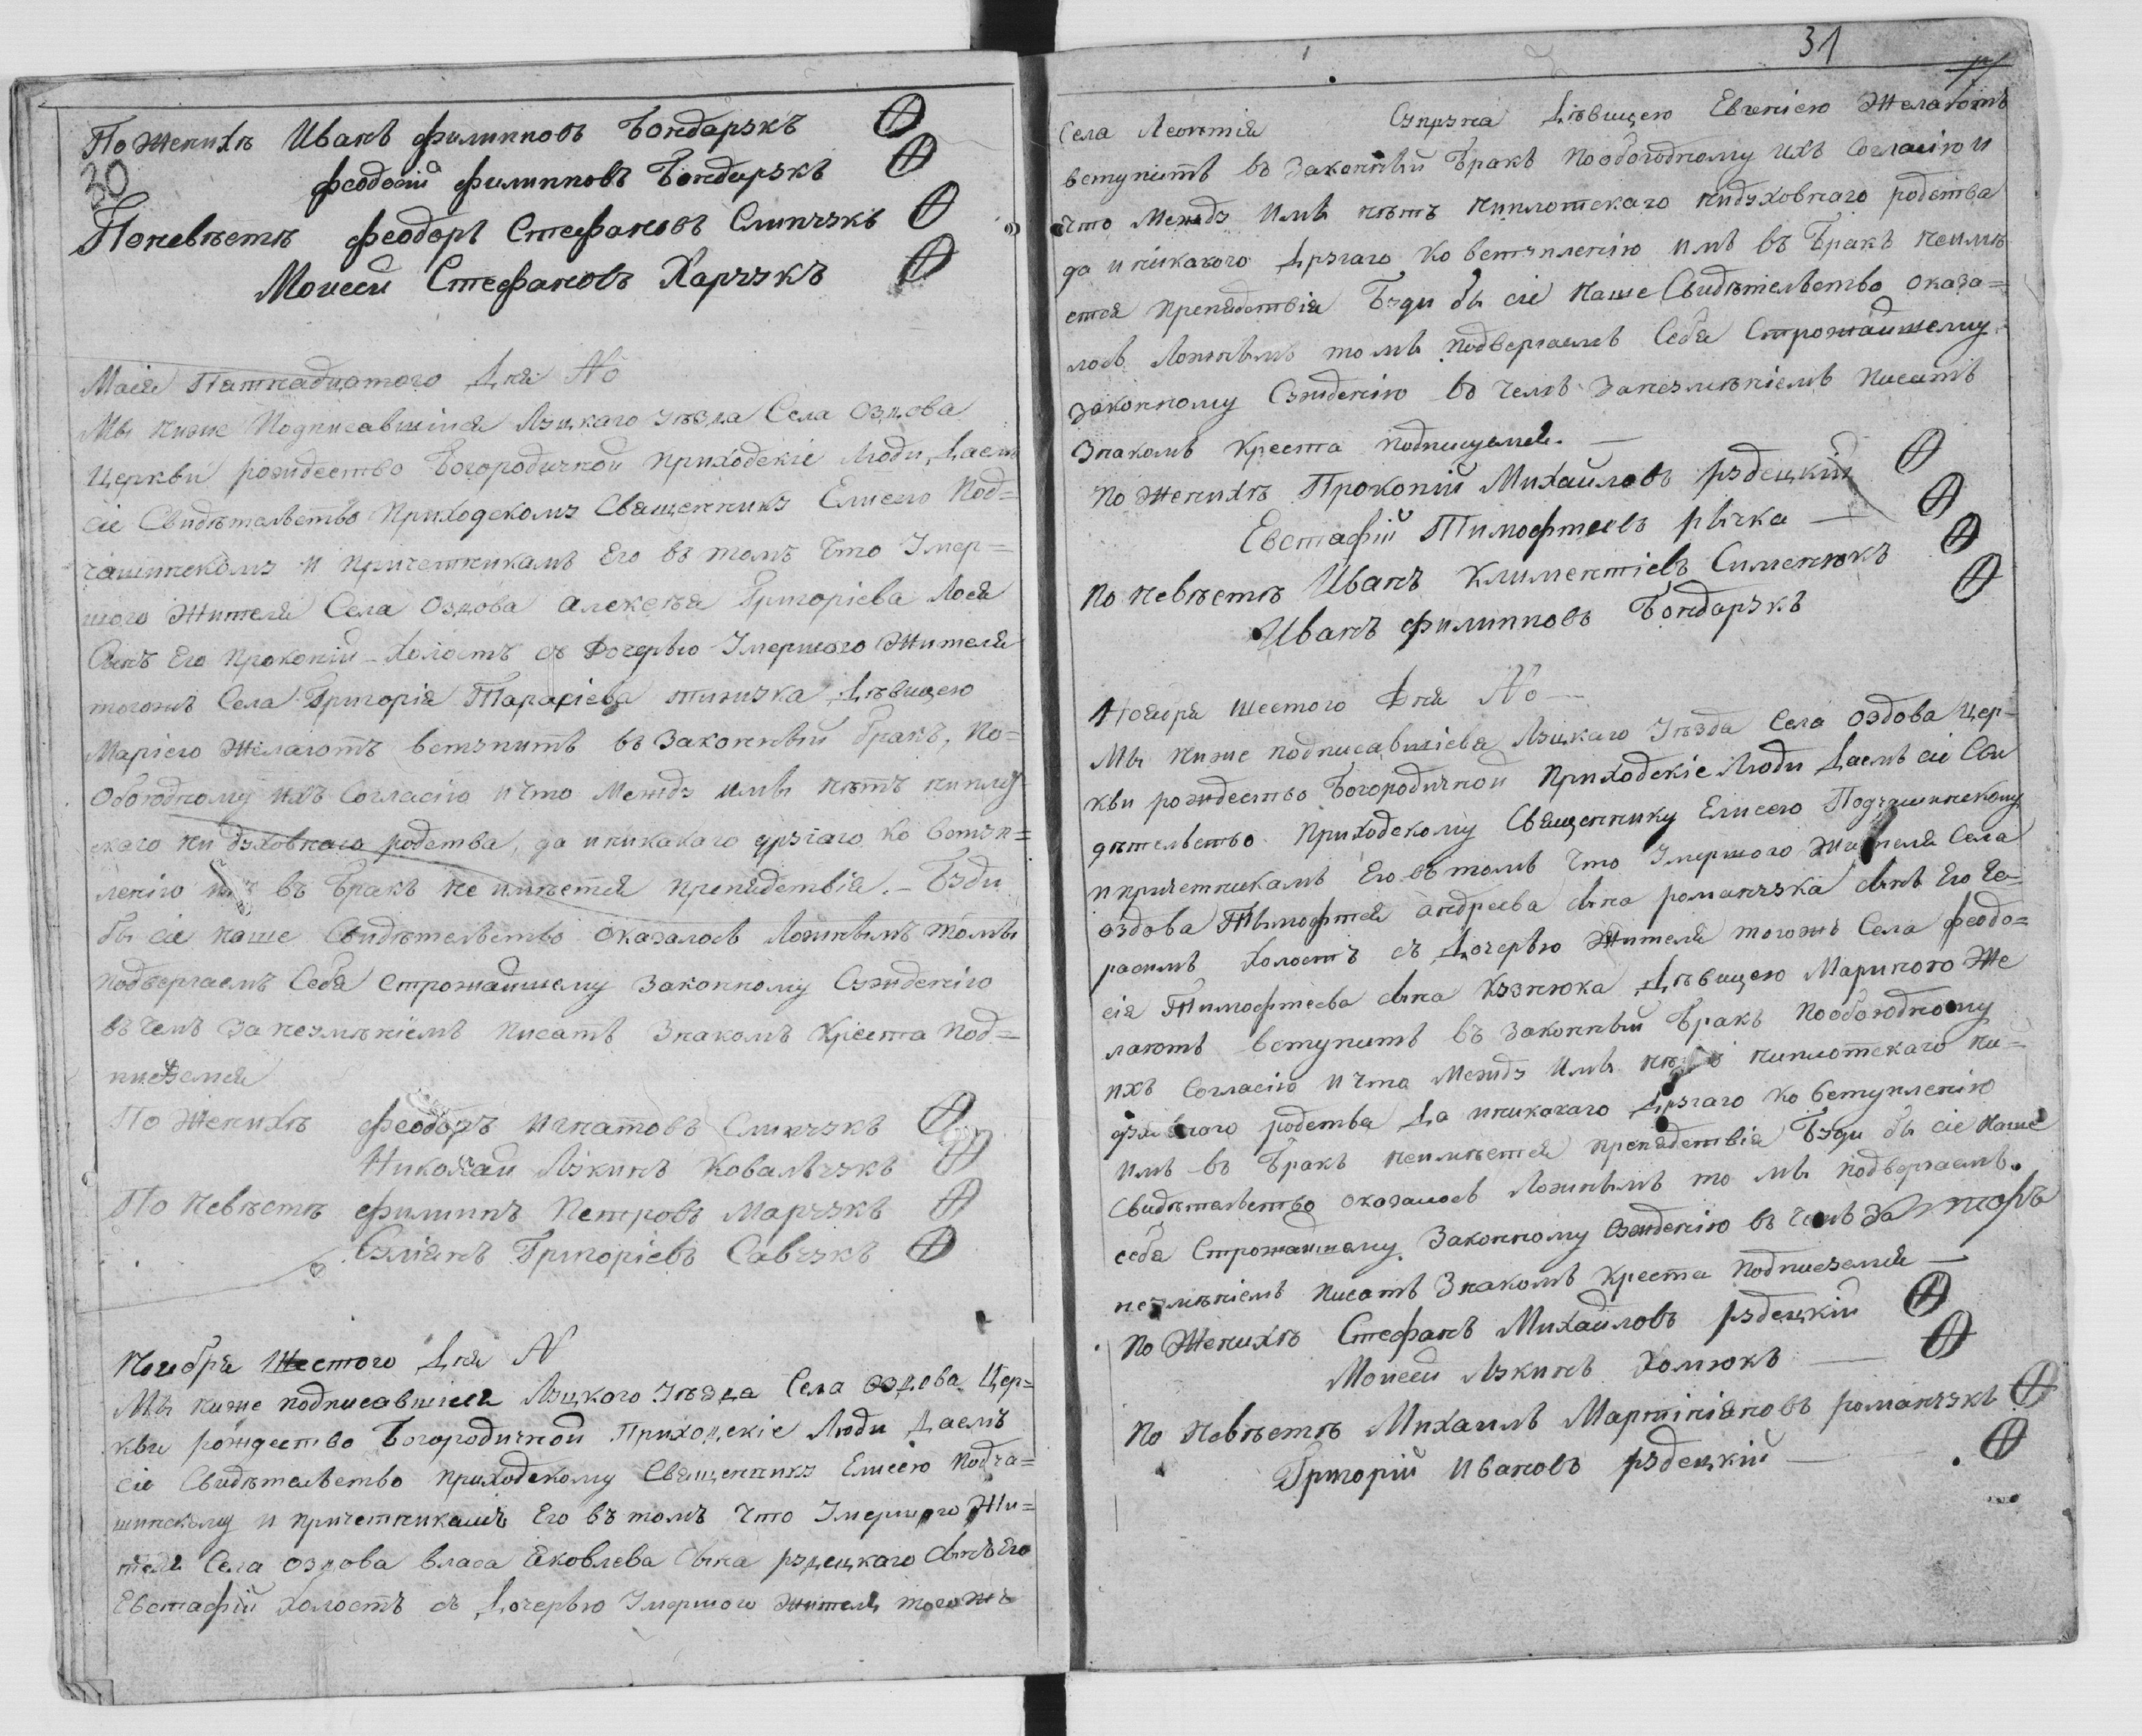 По Женихѣ Иванъ Филипповъ Бондарукъ
30
Феодосій Филипповъ Бондарукъ
Поневѣстѣ Феодоръ Стефановъ Слипчукъ
Моисей Стефановъ Харчукъ
Маія Пятнадцатого Дня No
Мы ниже Подписавшіися Луцкаго уѣзда Села Оздова
Церкви рождество Богородичной приходскіе Люди, Даемъ
сіе Свидѣтельство Приходскому Священнику Елисею Под=
чашинскому и причетникамъ Его въ томъ Что Умер=
шого Жителя Села Оздова Алексѣя Григоріева Лося
Сынъ Его Прокопій Холостъ съ Дочерью Умершого Жителя
тогожъ Села Григорія Тарасіева Дѣвицею
Маріею Желаютъ вступить въ Законный бракъ, По=
Обоюдному ихъ Согласію и что Между ими нѣтъ ниплот
скаго ни духовнаго родства, да и никакаго другаго ко вступ=
ленію въ Бракъ не имѣется препядствія. Буди
бы сіе наше Свидѣтельство оказалось Ложнымъ то мы
подвергаемъ Себя Строжайшему Законному Сужденію
въ чемъ за неумѣніемъ писать Знакомъ Креста Под=
писуемся
По Женихѣ Феодоръ Игнатовъ Слипчукъ
Николай Лукинъ Ковальчукъ
По невѣстѣ Филиппъ Петровъ Марчукъ
Григоріевъ Савчукъ
Ноября Шестого Дня N
Мы ниже подписавшіися Луцкого уѣзда Села Оздова Цер=
кви рождество Богородичной Приходскіе Люди Даемъ
сіе Свидѣтельство приходскому Священнику Елисею Подча=
шинскому и причетникамъ Его въ томъ Что Умершого Жи=
теля Села Оздова Власа Яковлева сына рудецкаго сынъ Его
Евстафій Холостъ съ Дочерью Умершого жителя тогожъ
31
Села Леонтія Супруна Дѣвицею Евгеніею Желаютъ
вступить въ Законный Бракъ Пообоюдному ихъ Согласію и
что Между Ими нѣтъ ниплотскаго нидуховнаго родства
да и никакого Другаго Ко вступленію имъ въ Бракъ неимѣ
ется Препядствія Буди бы сіе наше Свидѣтельство оказа=
лось Ложнымъ то мы подвергаемъ Себя Строжайшему
Законному Сужденію въ чемъ Занеумѣніемъ Писать
Знакомъ Креста подписуемся.
по Женихѣ Прокопій Михайловъ рудецкій
Евстафій Тимофтеевъ рычка
по невѣстѣ Иванъ Климентіевъ Сименюкъ
Иванъ Филипповъ Бондарукъ
Ноября шестого Дня No
Мы ниже подписавшіеся Луцкаго Уѣзда Села Оздова Цер=
кви рождество Богородичной Приходскіе Люди Даемъ сіе Сви
дѣтельство Приходскому Священнику Елисею Подчашинскому
и причетникамъ Его въ томъ Что Умершого Жителя Села
Оздова Тимофтея Андреева сына романчука сынъ Его Ге=
расимъ Холостъ съ Дочерью Жителя тогожъ Села Феодо=
сія Тимофтеева сына Кузнюка Дѣвицею Мариною Же
лаютъ вступить въ Законный Бракъ Пообоюдному
ихъ Согласію и что Между Ими нѣтъ ниплотскаго ни=
родства Да и никакаго Другаго Ко вступленію
имъ въ Бракъ неимѣется препядствія Буди бы сіе наше
Свидѣтельство оказалось Ложнымъ то мы подвергаемъ
себя Строжайшему Законному Сужденію въ чемъ За
неумѣніемъ писать Знакомъ Креста Подписуемся
по Женихѣ Стефанъ Михайловъ рудецкій
Моисей Лукинъ Хомюкъ
по невѣстѣ Михаилъ Мартиніановъ романчукъ
Григорій Ивановъ рудецкій